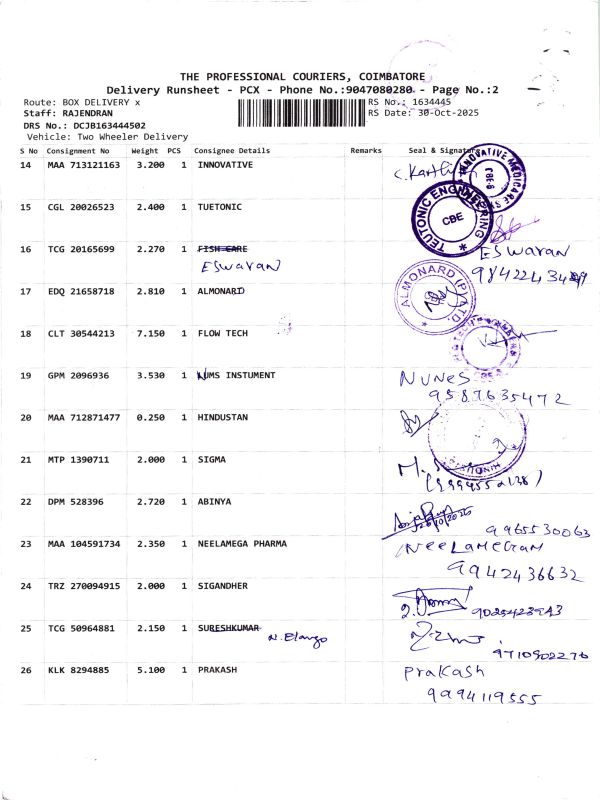 THE PROFESSIONAL COURIERS, COIMBATORE
Delivery Runsheet - PCX - Phone No.:9047080280 - Page No.:2
Route: BOX DELIVERY x RS No.: 1634445
Staff: RAJENDRAN RS Date: 30-Oct-2025
DRS No.: DCJB163444502
Vehicle: Two Wheeler Delivery
S No Consignment No Weight PCS Consignee Details Remarks Seal & Signature
14 MAA 713121163 3.200 1 INNOVATIVE
INNOVATIVE MEDICARE CBE-6
15 CGL 20026523 2.400 1 TUETONIC
TEUTONIC ENGINEERING CBE
16 TCG 20165699 2.270 1 FISH CARE Eswaran
Eswaran
17 EDQ 21658718 2.810 1 ALMONARD
ALMONARD (P) LTD.
18 CLT 30544213 7.150 1 FLOW TECH
19 GPM 2096936 3.530 1 NUMS INSTUMENT
NUNES
9587635472
20 MAA 712871477 0.250 1 HINDUSTAN
HINDUS
21 MTP 1390711 2.000 1 SIGMA
22 DPM 528396 2.720 1 ABINYA
9965530063
23 MAA 104591734 2.350 1 NEELAMEGA PHARMA
NEELAMEGAM
9942436632
24 TRZ 270094915 2.000 1 SIGANDHER
25 TCG 50964881 2.150 1 SURESHKUMAR N. Elango
9710902276
26 KLK 8294885 5.100 1 PRAKASH
Prakash
9994119555